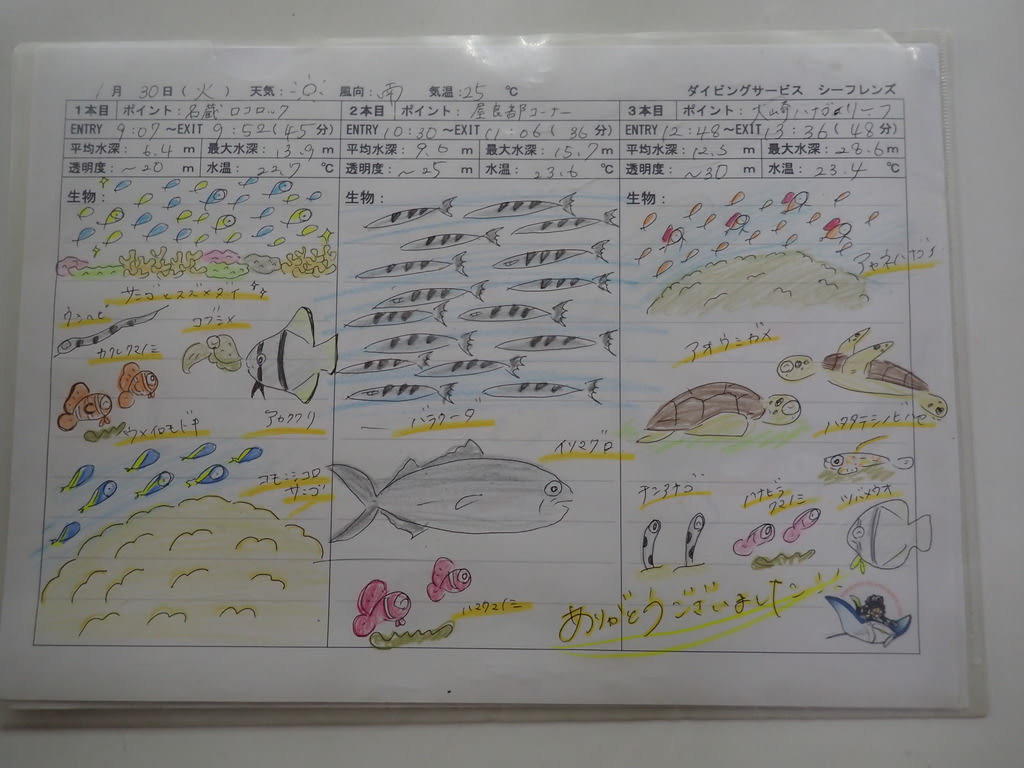 1月 30日(火) 天気: 風向:南 気温:25 ℃ ダイビングサービス シーフレンズ
1本目 ポイント: 名蔵 ロコロック
ENTRY 9:07 ～EXIT 9:52 (45分)
平均水深: 6.4 m 最大水深: 13.9 m
透明度: ～20 m 水温: 22.7 ℃
生物:
サンゴとスズメダイ
ウミヘビ
コブシメ
カクレクマノミ
アカククリ
ウメイロモドキ
コモンシコロ
サンゴ
2本目 ポイント: 屋良部コーナー
ENTRY 10:30 ～EXIT 11:06 (36分)
平均水深: 9.6 m 最大水深: 15.7 m
透明度: ～25 m 水温: 23.6 ℃
生物:
バラクーダ
イソマグロ
ハマクマノミ
3本目 ポイント: 大崎ハナゴイリーフ
ENTRY 12:48 ～EXIT 13:36 (48分)
平均水深: 12.5 m 最大水深: 28.6 m
透明度: ～30 m 水温: 23.4 ℃
生物:
アカネハナゴイ
アオウミガメ
ハタタテシノビハゼ
チンアナゴ
ハナビラ
クマノミ
ツバメウオ
ありがとうございました